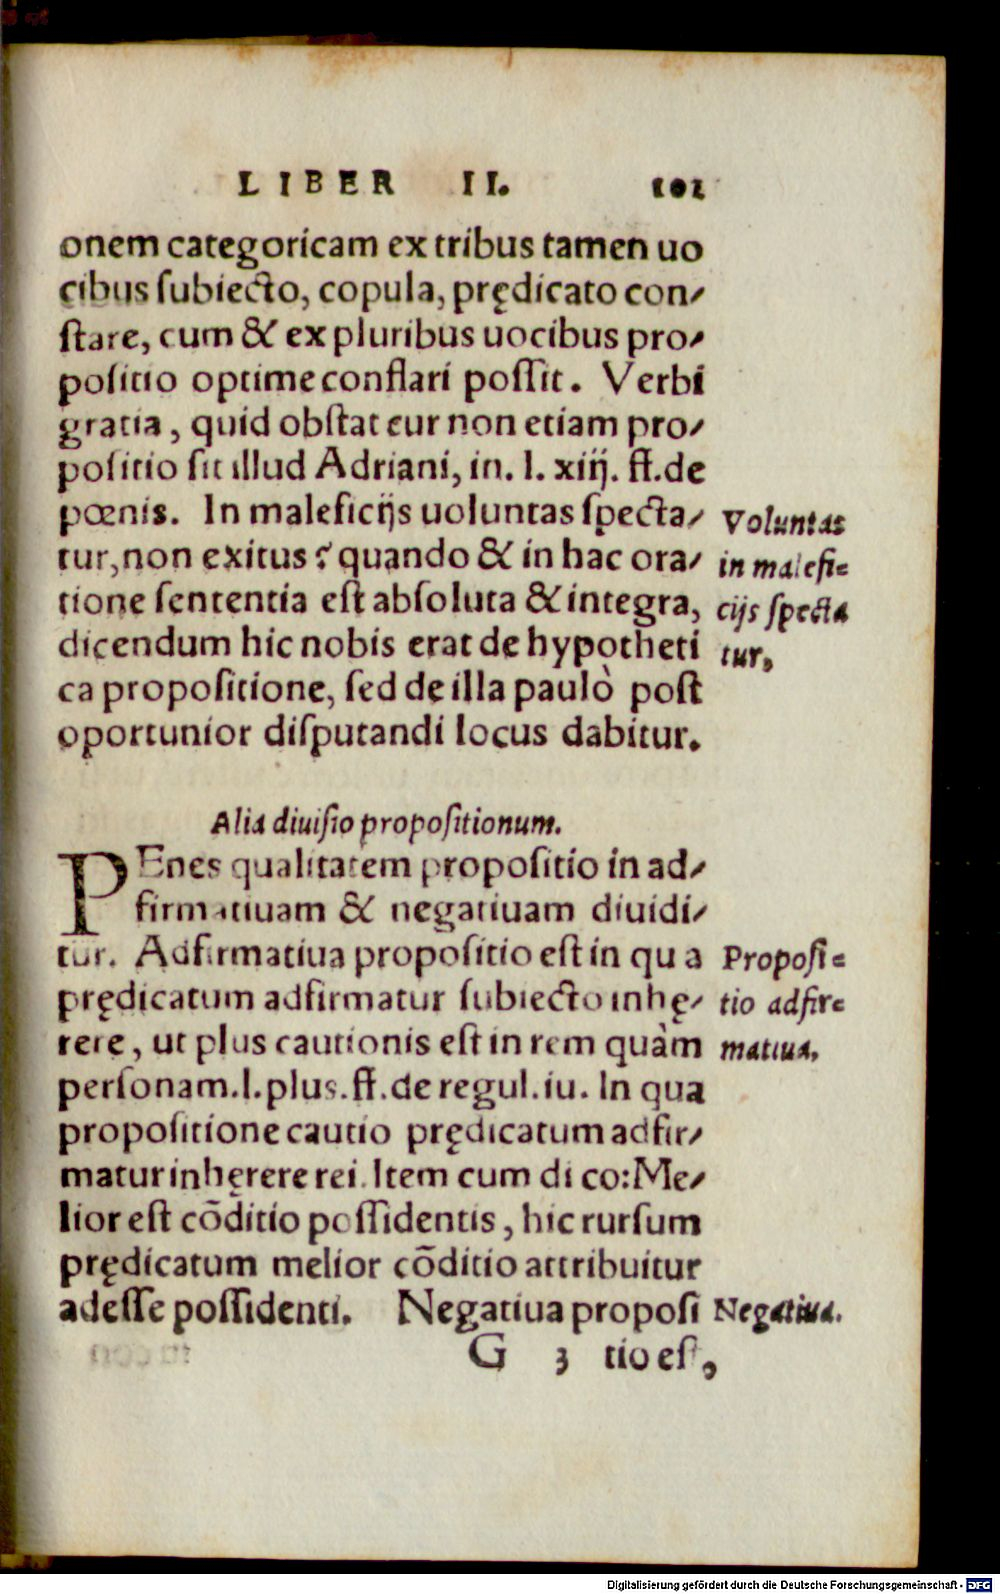 LIBER II. 101
onem categoricam ex tribus tamen uo
cibus ſubiecto, copula, prędicato con⸗
ſtare, cum & ex pluribus uocibus pro⸗
poſitio optime conflari poſſit. Verbi
gratia, quid obſtat cur non etiam pro⸗
poſitio ſit illud Adriani, in. l. xiij. ff. de
pœnis. In maleficijs uoluntas ſpecta⸗
tur, non exitus? quando & in hac ora⸗
tione ſententia eſt abſoluta & integra,
dicendum hic nobis erat de hypotheti
ca propoſitione, ſed de illa paulò poſt
oportunior diſputandi locus dabitur.
Voluntas
in malefi⸗
cijs ſpecta
tur,
Alia diuiſio propoſitionum.
PEnes qualitatem propoſitio in ad⸗
firmatiuam & negatiuam diuidi⸗
tur. Adfirmatiua propoſitio eſt in qua
prędicatum adfirmatur ſubiecto inhę⸗
rere, ut plus cautionis eſt in rem quàm
perſonam. l. plus. ff. de regul. iu. In qua
propoſitione cautio prędicatum adfir⸗
matur inhęrere rei. Item cum dico: Me⸗
lior eſt cõditio poſſidentis, hic rurſum
prędicatum melior cõditio attribuitur
adeſſe poſſidenti. Negatiua propoſi
Propoſi⸗
tio adfir⸗
matiua.
Negatiua.
G 3 tio eſt,
Digitalisierung gefördert durch die Deutsche Forschungsgemeinschaft - DFG